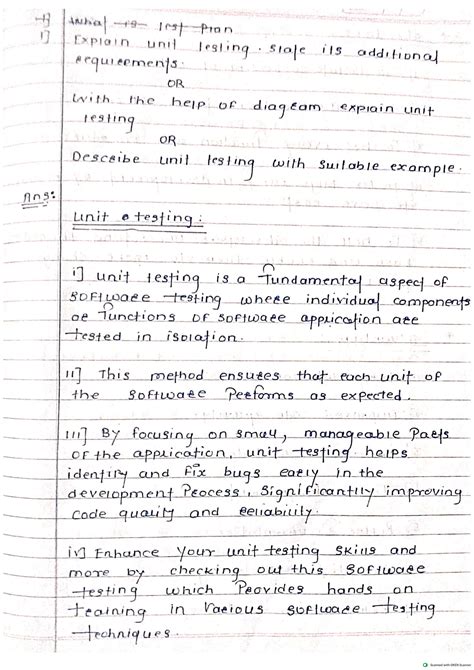 what is test plan
1] Explain unit testing. state its additional
requirements.
OR
with the help of diagram explain unit
testing
OR
Describe unit testing with suitable example.
Ans:
unit testing:
i] unit testing is a fundamental aspect of
software testing where individual components
or functions of software application are
tested in isolation.
ii] This method ensures that each unit of
the software performs as expected.
iii] By focusing on small, manageable parts
of the application, unit testing helps
identify and fix bugs early in the
development process, significantly improving
code quality and reliability.
iv] Enhance your unit testing skills and
more by checking out this software
testing which provides hands on
training in various software testing
techniques.
Scanned with OKEN Scanner